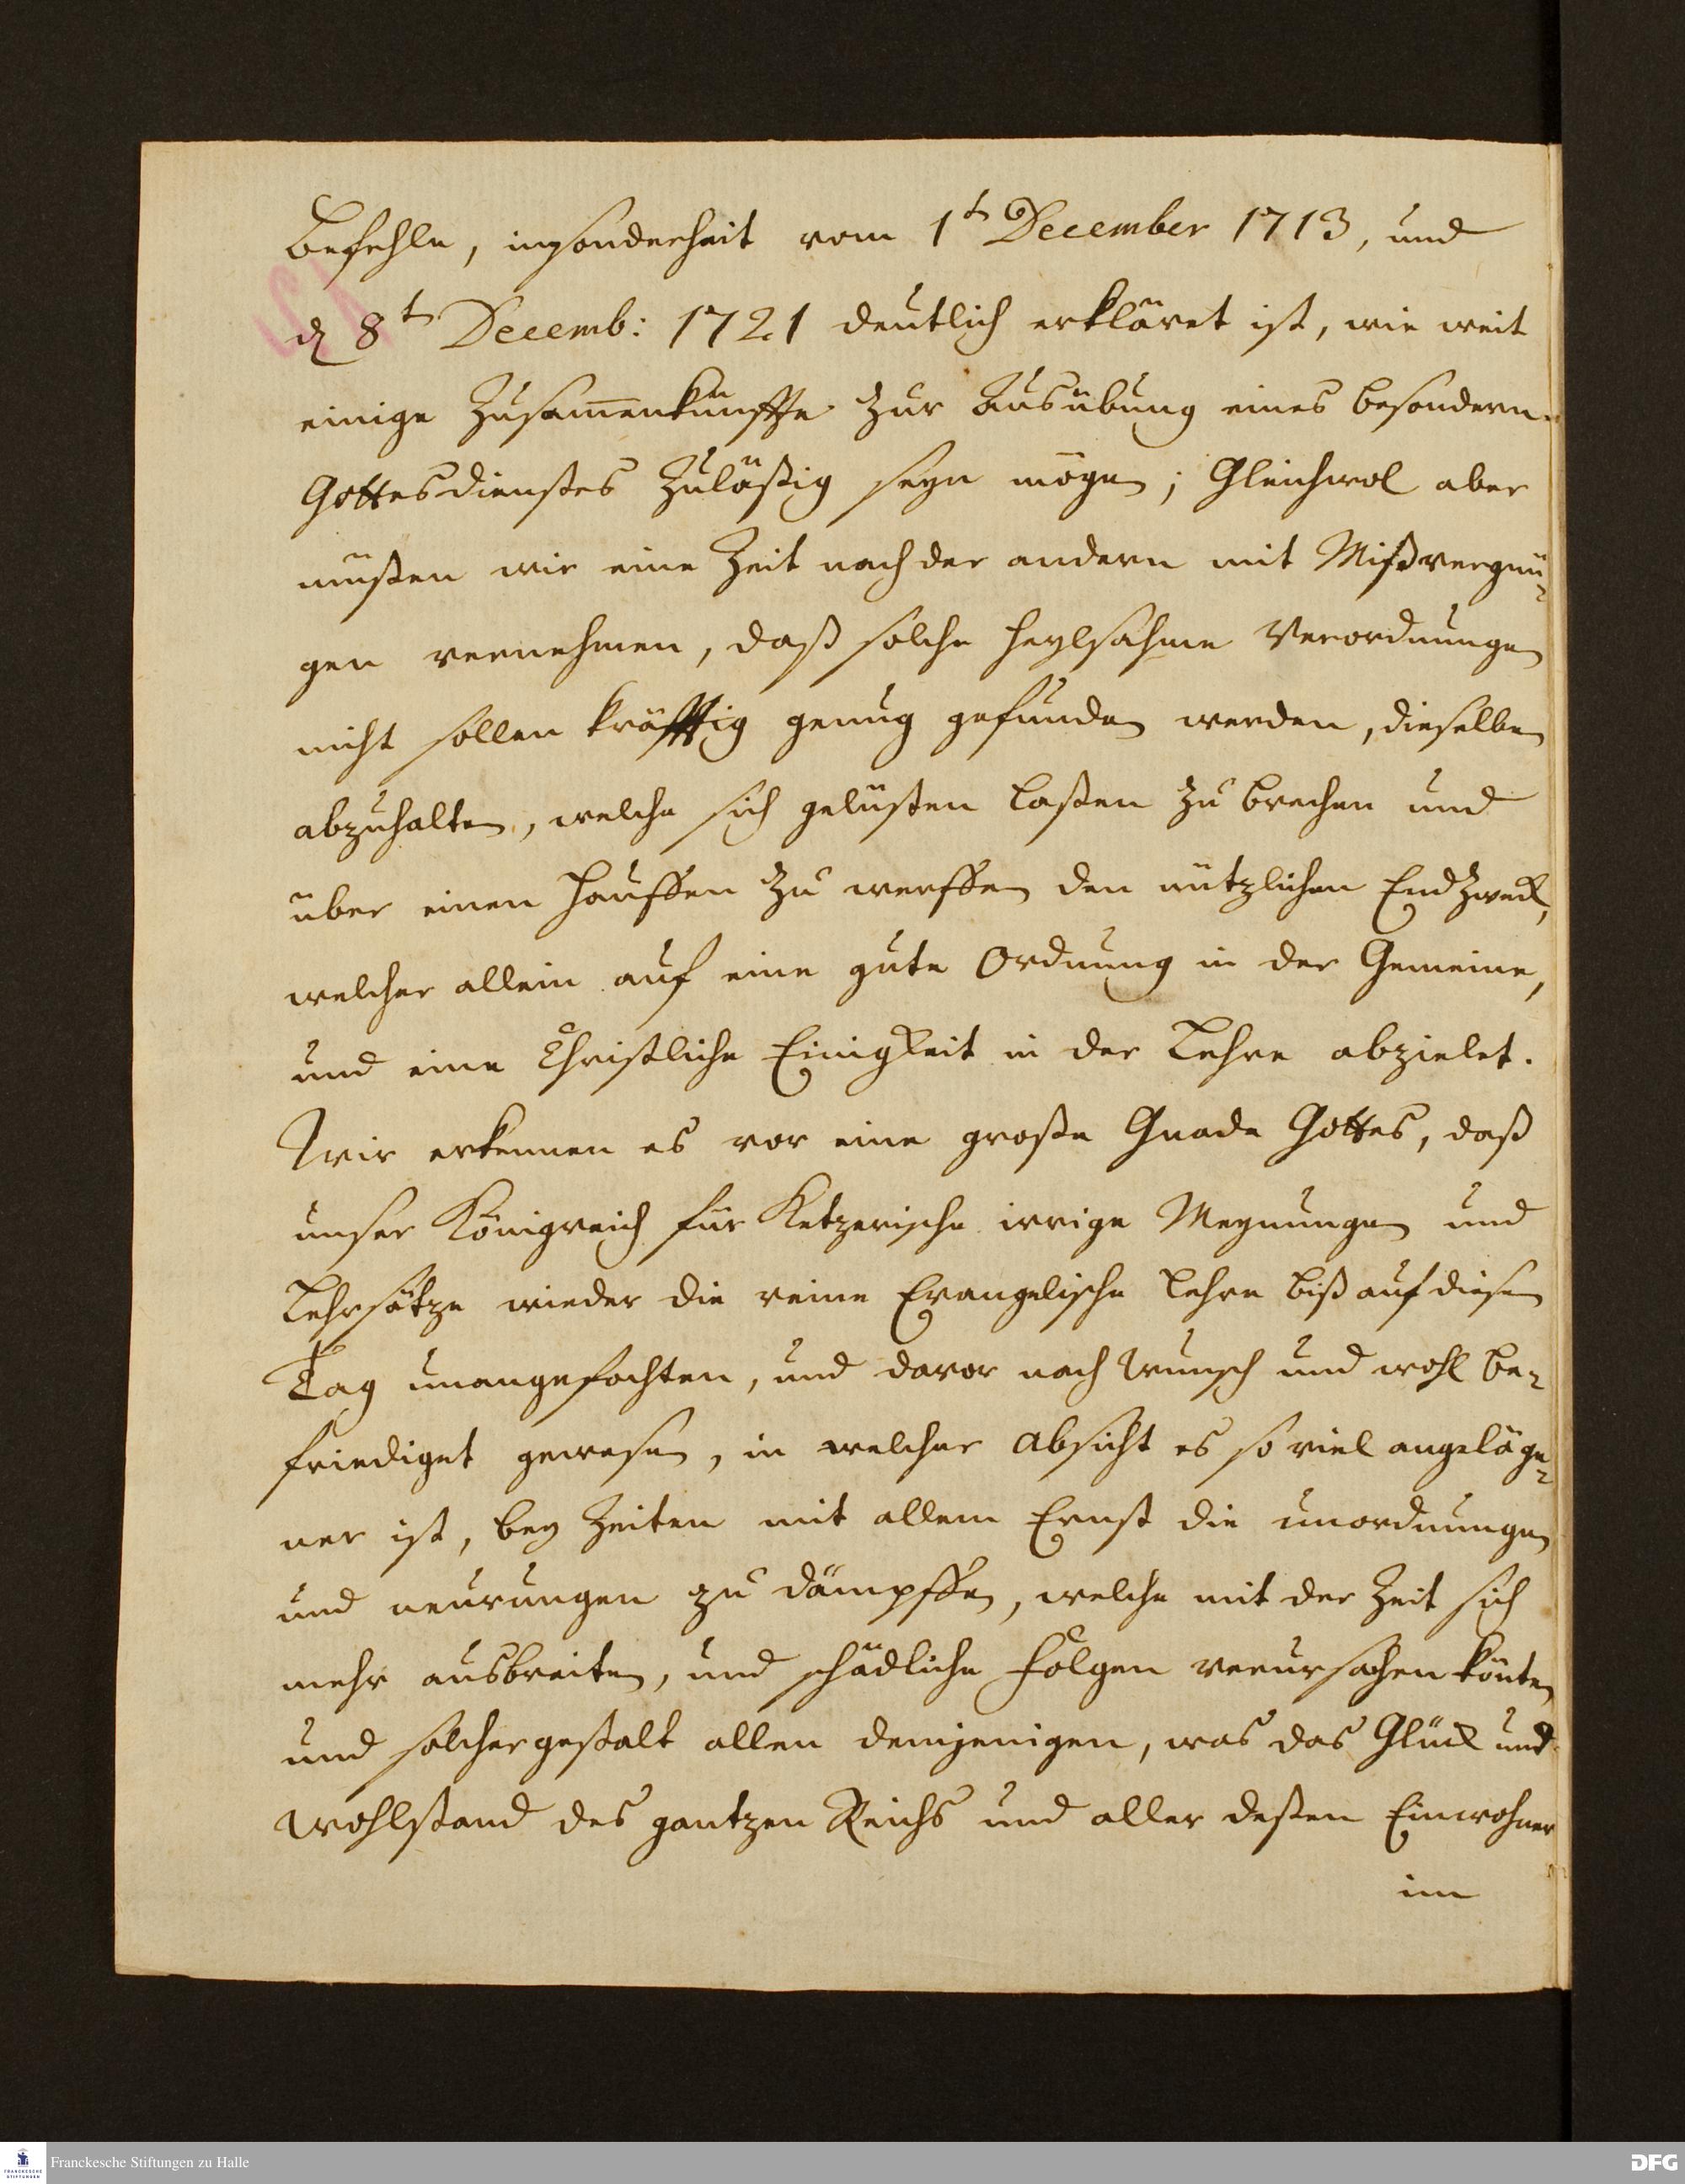 Befehle, insonderheit vom 1t December 1713, und
d 8t Decemb: 1721 deutlich erkläret ist, wie weit
einige Zusam̅enkünffte zur Ausübung eines besondern
Gottesdienstes zuläßig seyn mögen; Gleichwol aber
müßen wir eine Zeit nach der andern mit Mißvergnü-
gen vernehmen, daß solche heylsahme Verordnungen
nicht sollen kräfftig genug gefunden werden, dieselben
abzuhalten, welche sich gelüsten laßen zu brechen und
über einen Hauffen zu werffen den nützlichen Endzweck,
welcher allein auf eine gute Ordnung in der Gemeine,
und eine Christliche Einigkeit in der Lehre abzielet.
Wir erkennen es vor eine große Gnade Gottes, daß
unser Königreich für Ketzerische irrige Meynungen und
Lehrsätze wieder die reine Evangelische Lehre biß auf diesen
Tag unangefochten, und davor nach Wunsch und wohl be-
friediget gewesen, in welcher Absicht es so viel angeläge-
ner ist, bey Zeiten mit allem Ernst die unordnungen
und neurungen zu dämpffen, welche mit der Zeit sich
mehr ausbreiten, und schädliche Folgen verursachen könten
und solchergestalt allen demjenigen, was das Glück und
Wohlstand des gantzen Reichs und aller deßen Einwohner
im
FRANCKESCHE STIFTUNGEN
Franckesche Stiftungen zu Halle
DFG